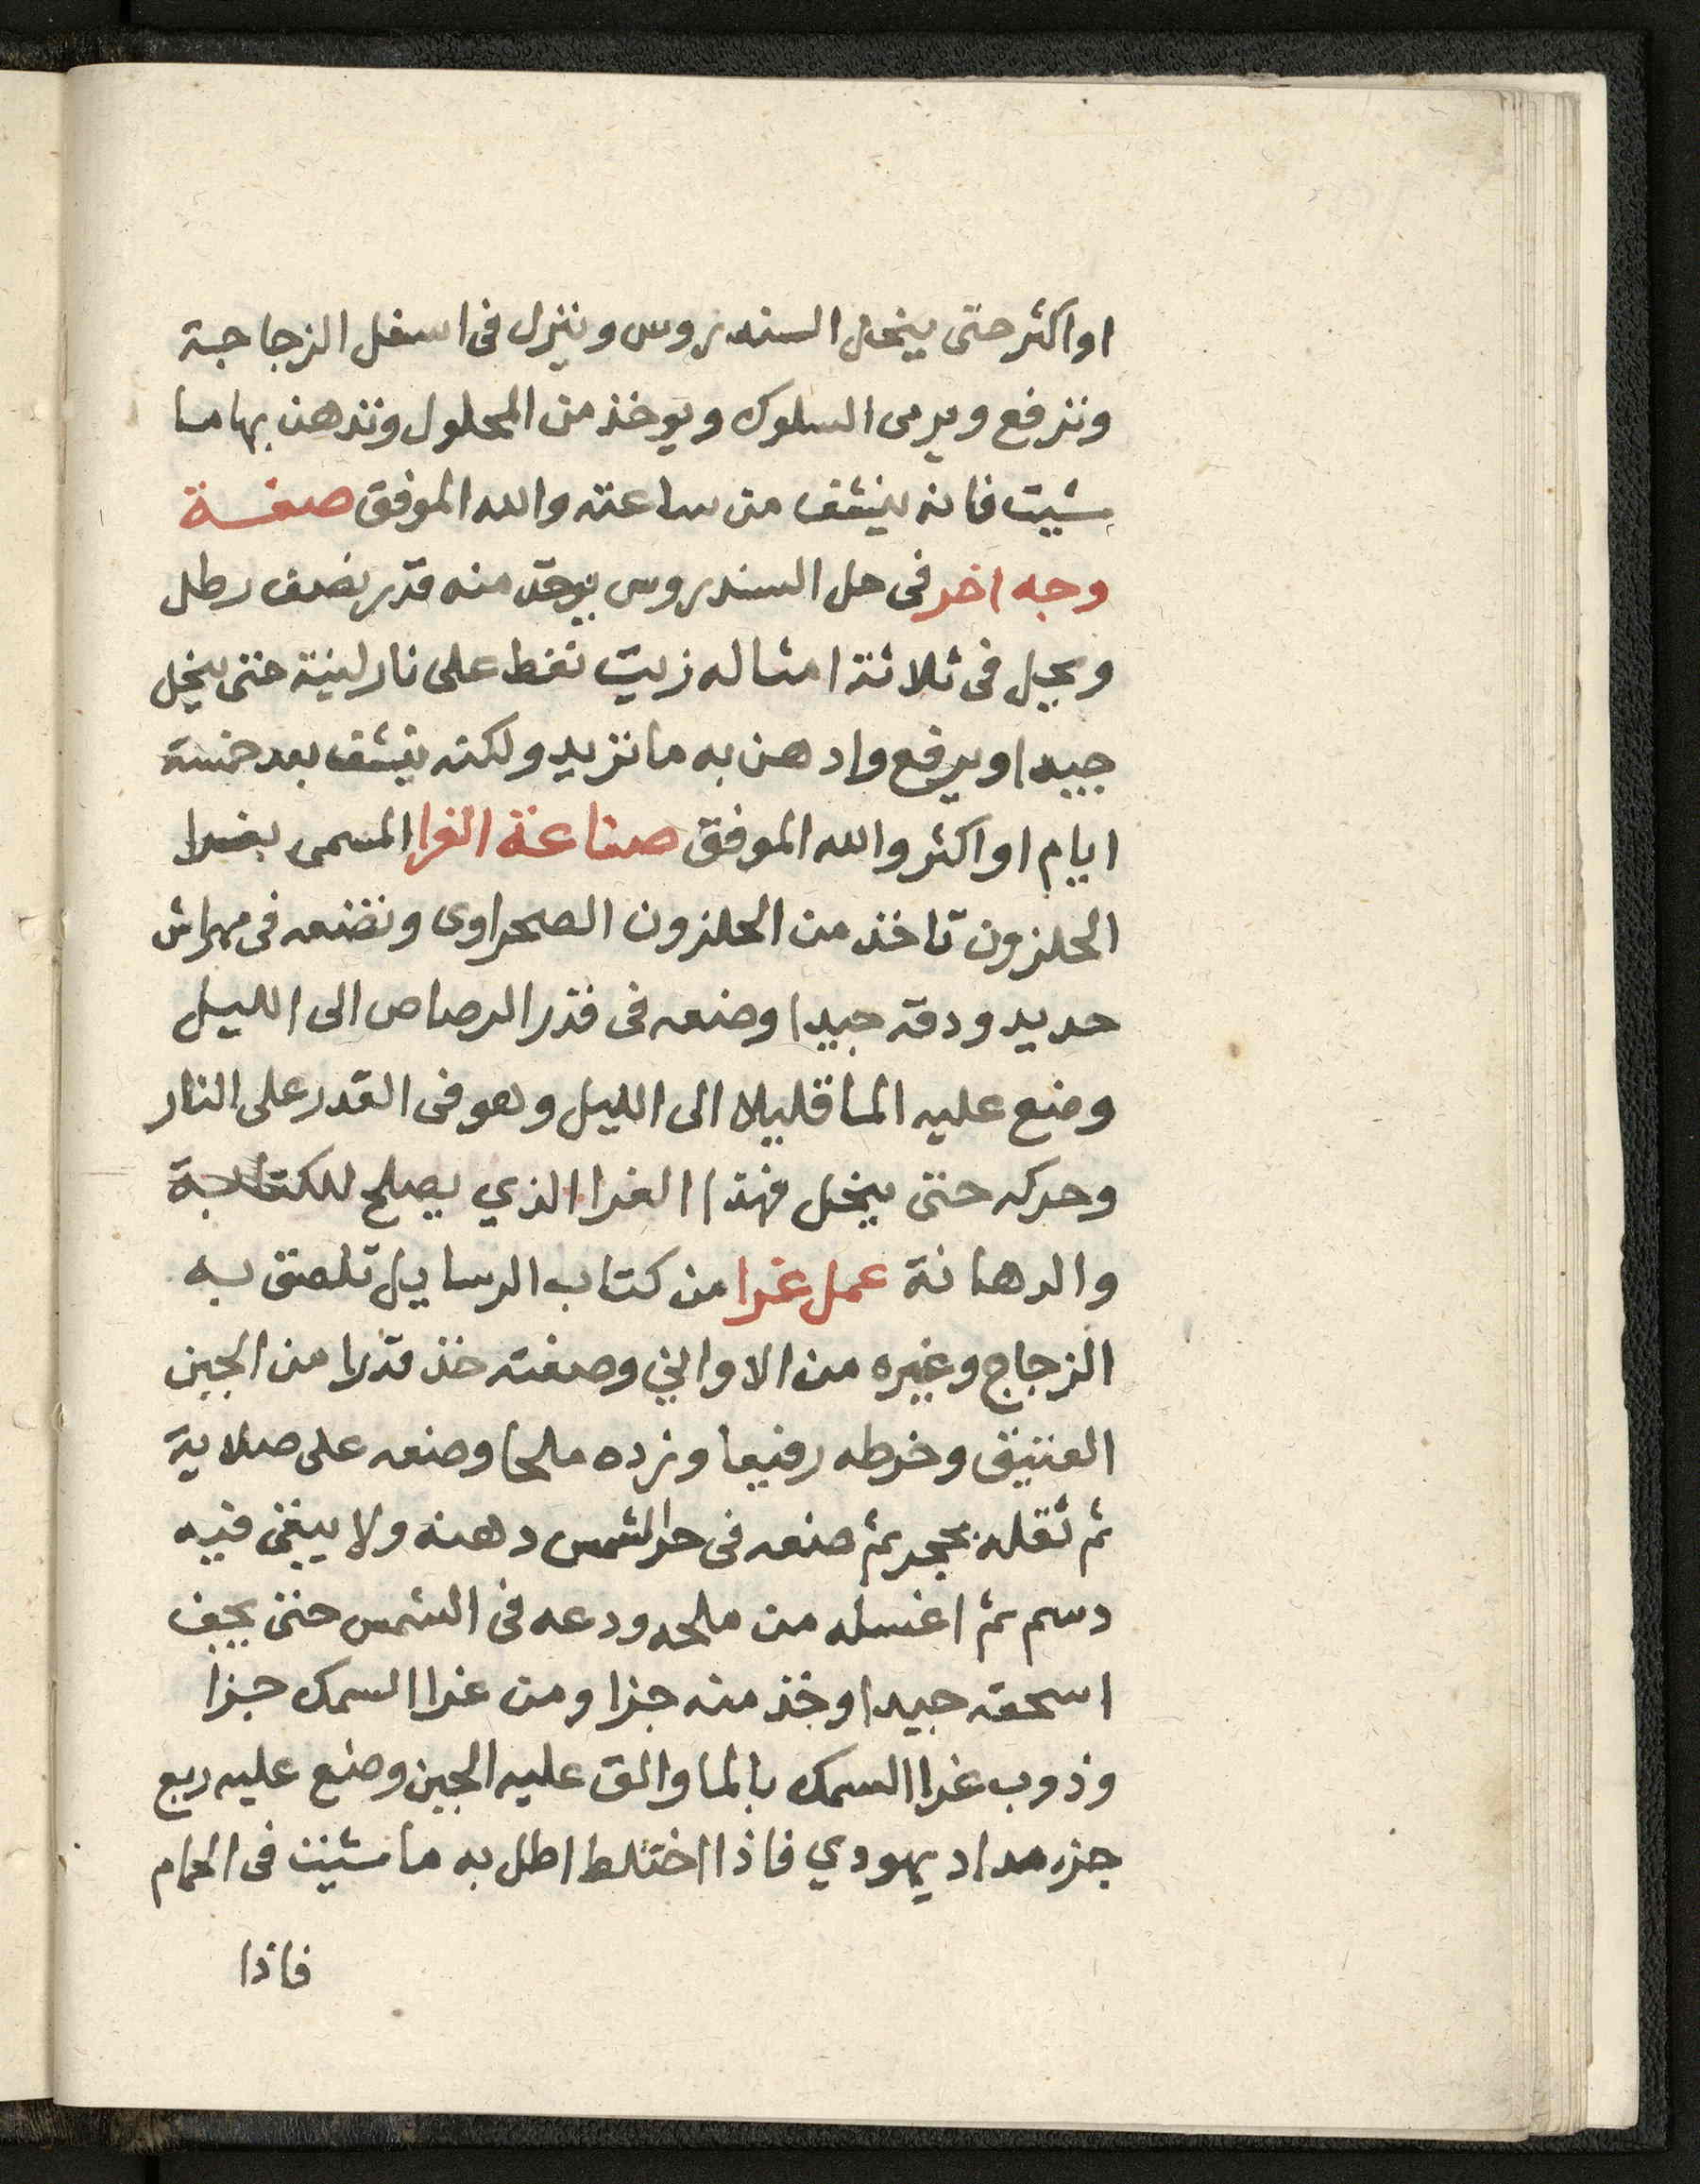 او اكثر حتى ينحل السندروس وننزل فى اسفل الزجاجة
ونرفع ويرمى السلوك ويوخذ من المحلول وندهن بها ما
شيت فانه ينشف من ساعته والله الموفق صفة
وجه اخر فى حل السندروس يوخذ منه قدر نصف رطل
ويجل فى ثلاثة امثاله زيت نفط على نار لينة حتى ينحل
جيدا ويرفع وادهن به ما تريد ولكنه ينشف بعد خمسة
ايام او اكثر والله الموفق صناعة الغرا المسمى بغرا
الحلزون تاخذ من الحلزون الصحراوى ونضعه فى مهراش
حديد ودقه جيدا وضعه فى قدر الرصاص الى الليل
وضع عليه الما قليلا الى الليل وهو فى القدر على النار
وحركه حتى ينحل فهذا الغرا الذي يصلح للكتابة
والدهانة عمل غرا من كتاب الرسايل تلصق به
الزجاج وغيره من الاواني وصفته خذ قدرا من الجبن
العتيق وخرطه رفيعا وزده ملحا وضعه على صلاية
ثم ثقله بحجر ثم ضعه فى حر الشمس دهنه ولا يبقى فيه
دسم ثم اغسله من ملحه ودعه فى الشمس حتى يجف
اسحقه جيدا وخذ منه جزا ومن غرا السمك جزا
وذوب غرا السمك بالما والق عليه الجبن وضع عليه ربع
جزء مداد يهودي فاذا اختلط اطل به ما شيت فى الحمام
فاذا